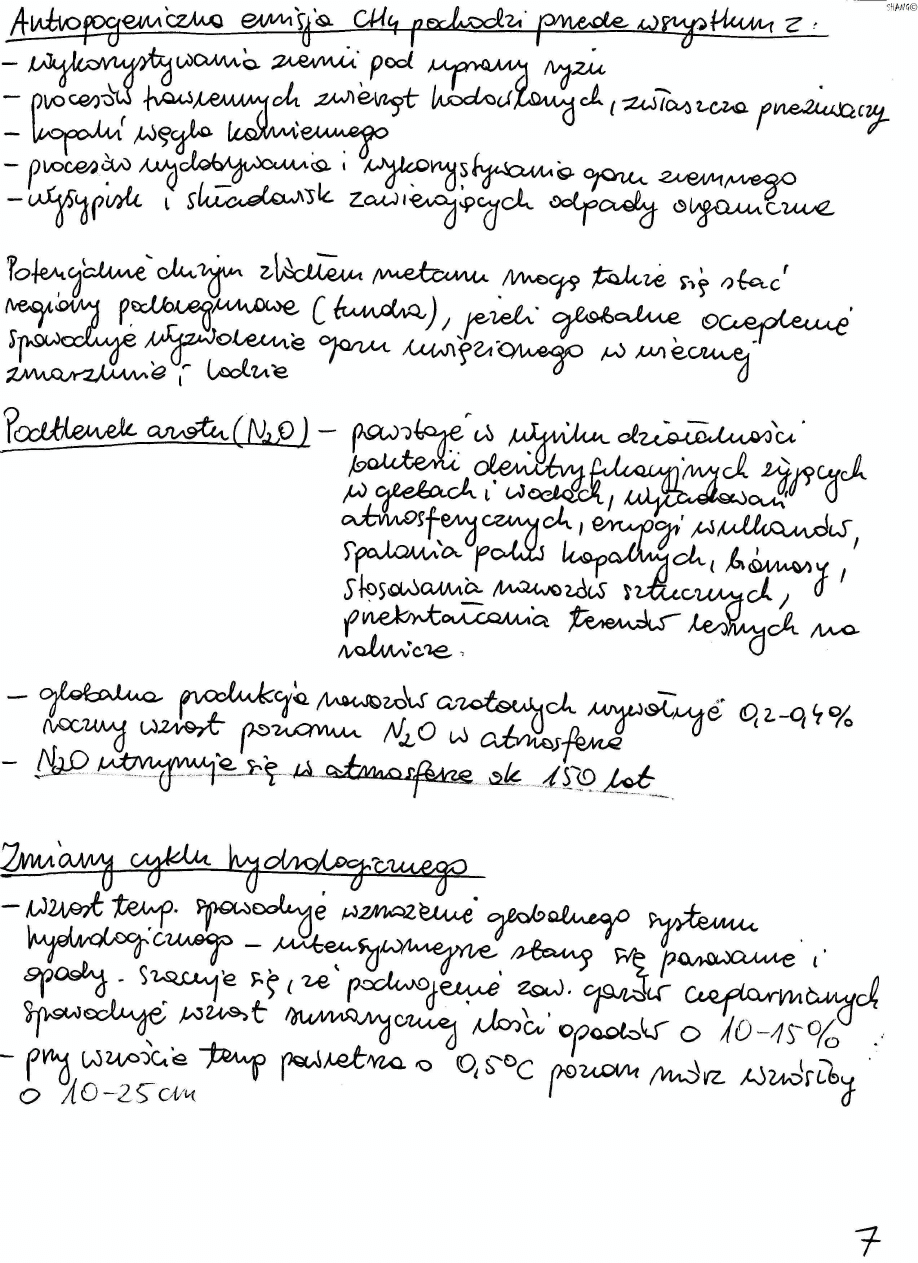 SHANG©
Antropogeniczna emisja CH4 pochodzi przede wszystkim z:
- wykorzystywania ziemii pod uprawy ryżu
- procesów trawiennych zwierząt hodowlanych, zwłaszcza przeżuwaczy
- kopalń węgla kamiennego
- procesów wydobywania i wykorzystywania gazu ziemnego
- wysypisk i składowisk zawierających odpady organiczne
Potencjalnie dużym źródłem metanu mogą także się stać
regiony podbiegunowe (tundra), jeżeli globalne ocieplenie
spowoduje wyzwolenie gazu uwięzionego w wiecznej
zmarzlinie i lodzie
Podtlenek azotu (N2O) - powstaje w wyniku działalności
bakterii denitryfikacyjnych żyjących
w glebach i wodach, wyładowań
atmosferycznych, erupcji wulkanów,
spalania paliw kopalnych, biomasy,
stosowania nawozów sztucznych,
przekształcania terenów leśnych na
rolnicze.
- globalna produkcja nawozów azotowych wywołuje 0,2-0,4%
roczny wzrost poziomu N2O w atmosferze
- N2O utrzymuje się w atmosferze ok 150 lat
Zmiany cyklu hydrologicznego
- wzrost temp. spowoduje wzmożenie globalnego systemu
hydrologicznego - intensywniejsze staną się parowanie i
opady. Szacuje się, że podwojenie zaw. gazów cieplarnianych
spowoduje wzrost sumarycznej ilości opadów o 10-15%
- przy wzroście temp powietrza o 0,5°C poziom mórz wzrósłby
o 10-25 cm
7